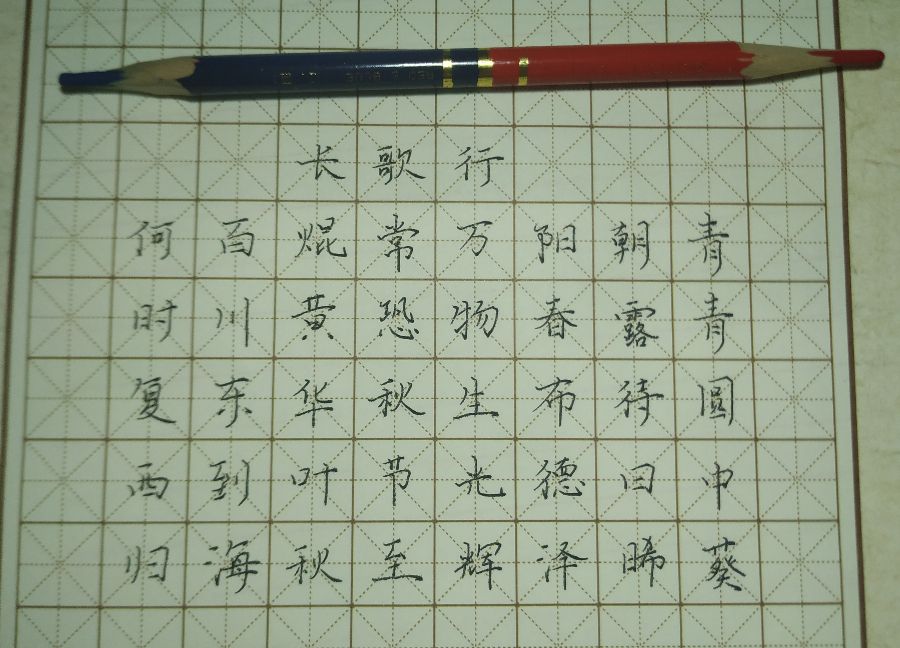 长歌行
青青圆中葵
朝露待日晞
阳春布德泽
万物生光辉
常恐秋节至
焜黄华叶秋
百川东到海
何时复西归